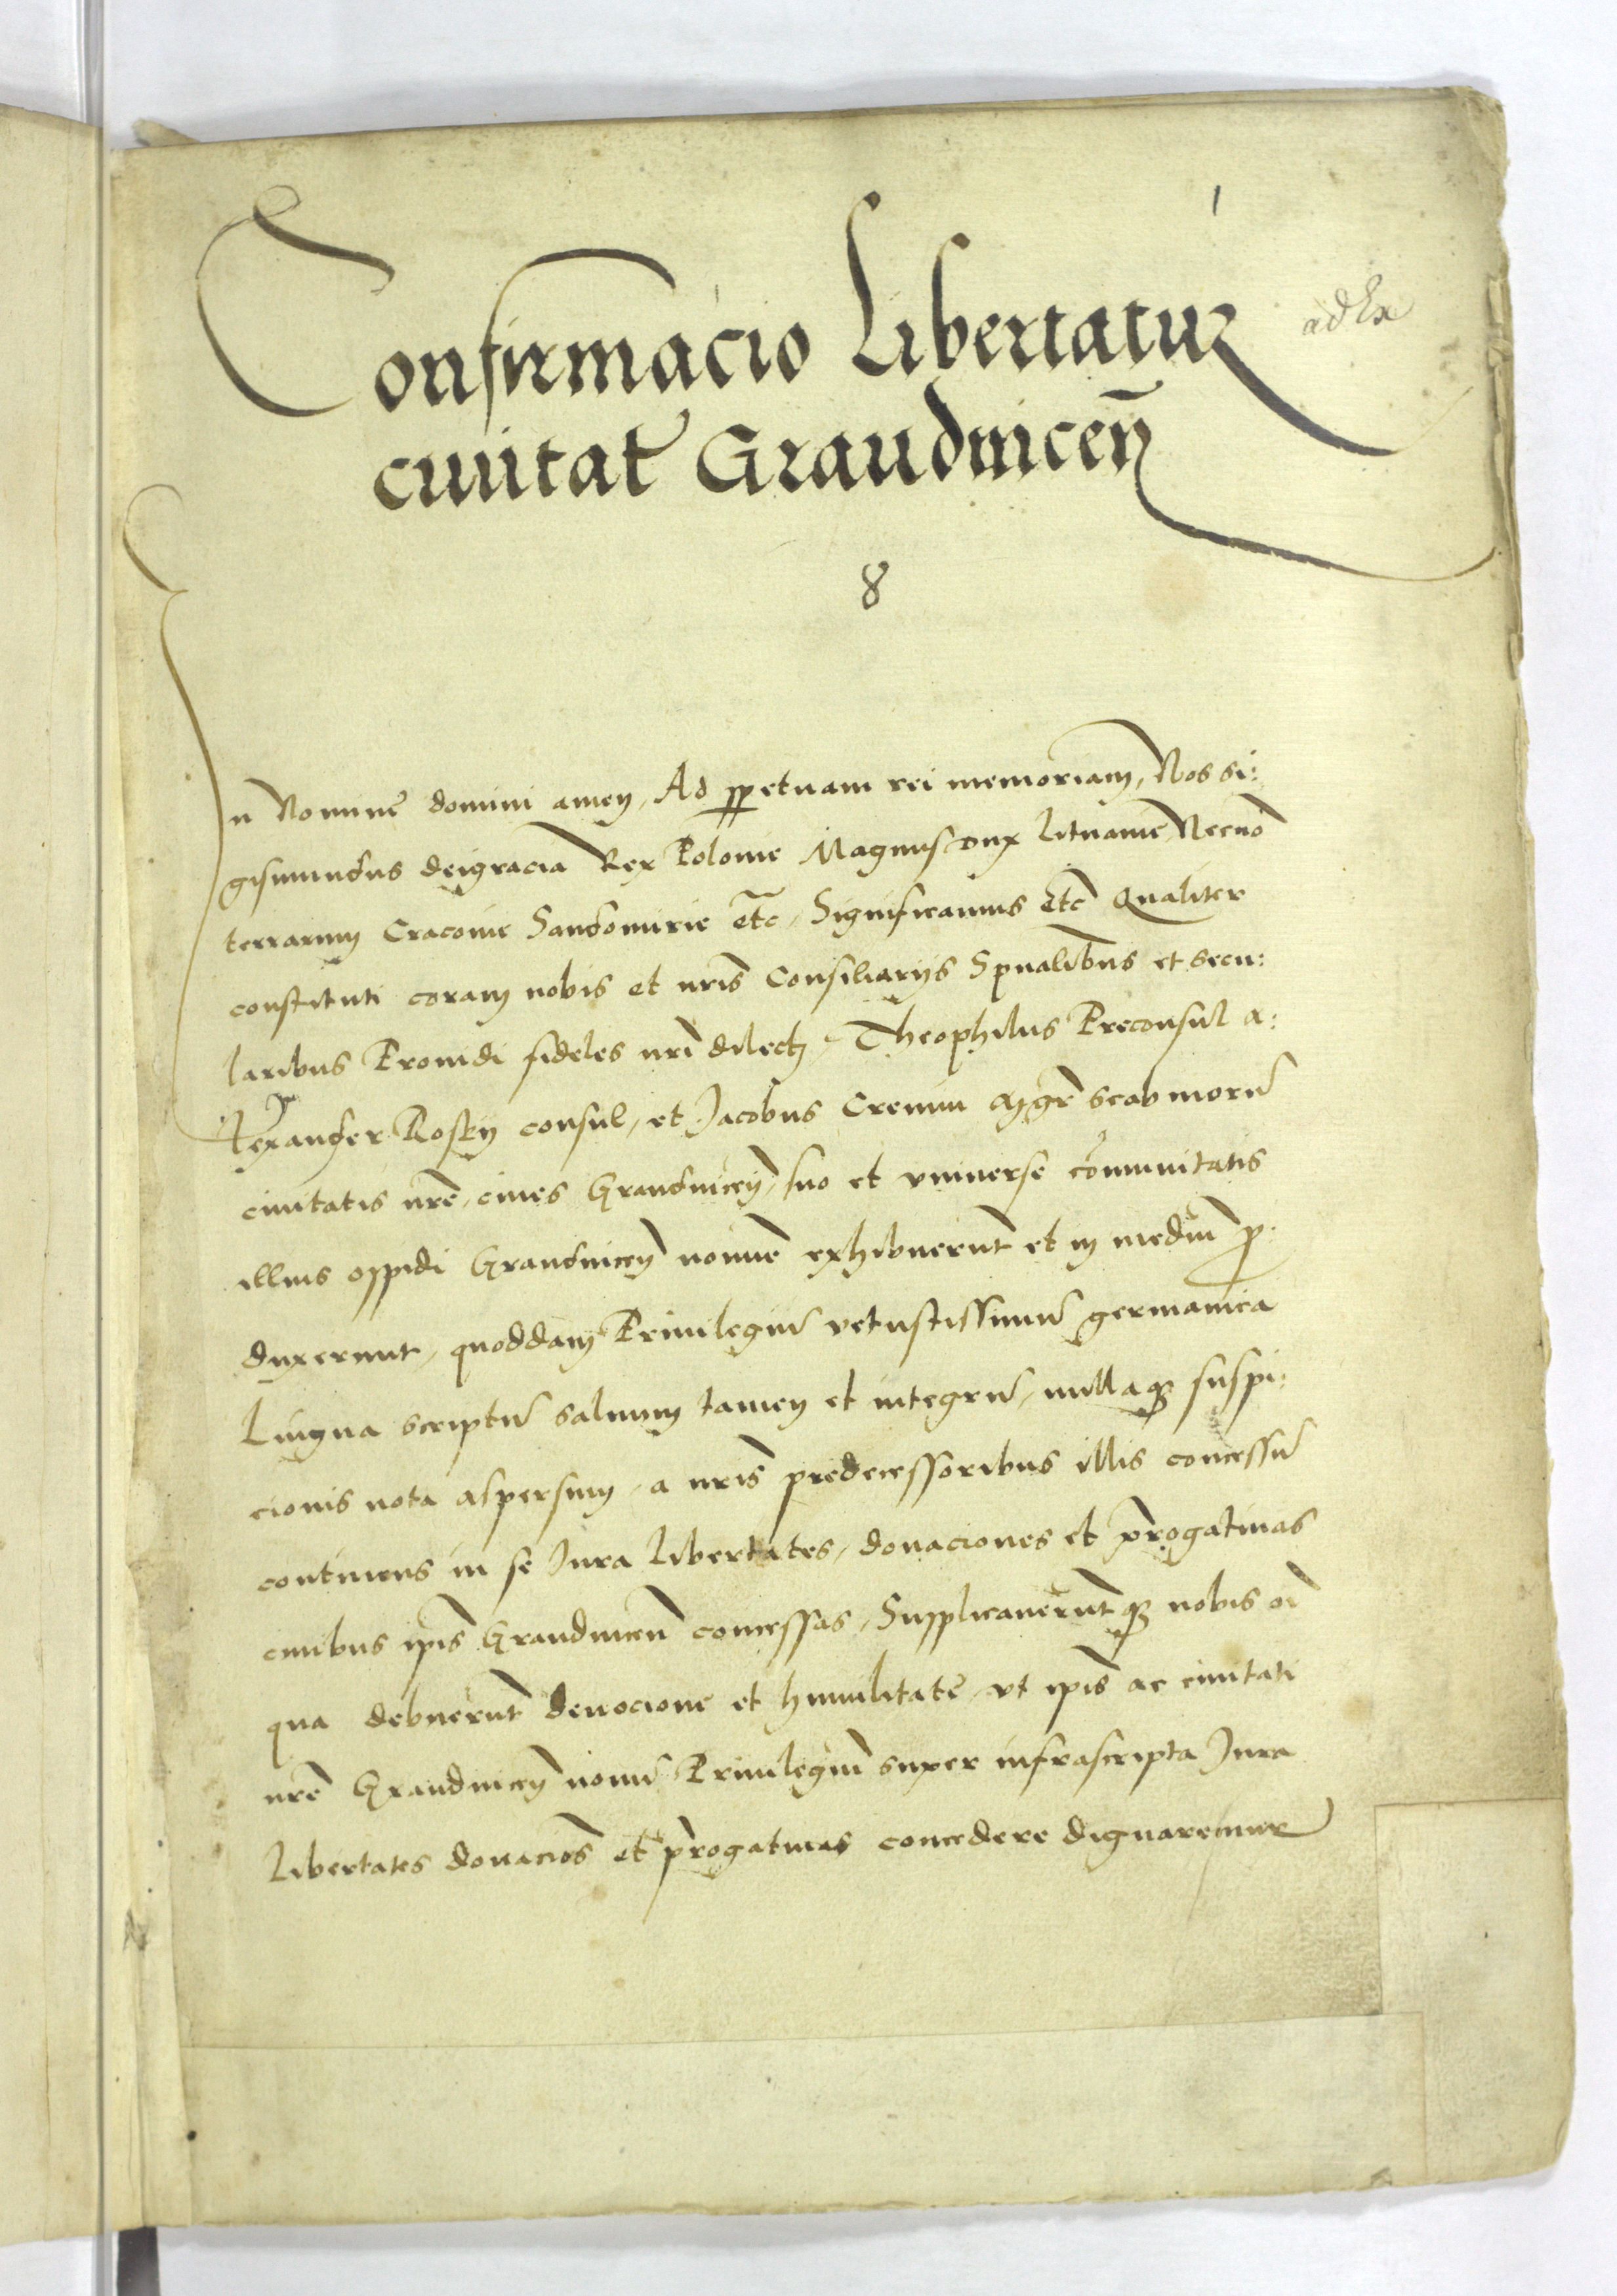 Confirmacio Libertatuꝫ
ad Ex
ciuitat̃ Graudnicen̄
8
In Nomine domini amen, Ad ꝑpetuam rei memoriam, Nos Si:
gismundus dei gracia Rex Polonie Magnus dux Lituanie Necnō
terrarum Cracouie Sandomirie etc̄, Significamus etc̄ Qualiter
constituti coram nobis et nr̄is Consiliarijs Sp̄ualibus et secu:
laribus Prouidi fideles nr̄i dilecti, Theophilus Preconsul A:
lexander Rosky consul, et Jacobus Cremm scabinorū
ciuitatis nr̄e, ciues Graudnicen̄, suo et vniuerse cōmunitatis
illius oppidi Graudnicen̄ nomīe exhibuerunt et in mediū ꝓ
duxerunt, quoddam Priuilegiū vetustissimū germanica
Lingua scriptū saluum tamen et integrū, nullaqꝫ suspi:
cionis nota aspersum, a nr̄is predecessoribus illis concessū
continens in se Jura Libertates, donaciones et prerogatiuas
ciuibus ip̄is Graudnicen̄ concessas, Supplicaueruntqꝫ nobis oī
qua debuerunt deuocione et humilitate, vt ip̄is ac ciuitati
nr̄e Graudnicen̄ nouū Priuilegiū super infrascripta Jura
Libertates donaciōs et prerogatiuas concedere dignaremur